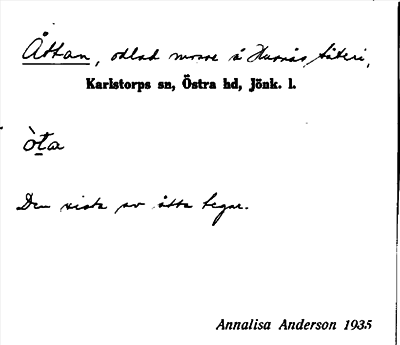 Åttan, odlad mosse å Husnäs säteri,
Karlstorps sn, Östra hd, Jönk. l.
òta
Den sista av åtta tegar.
Annalisa Anderson 1935